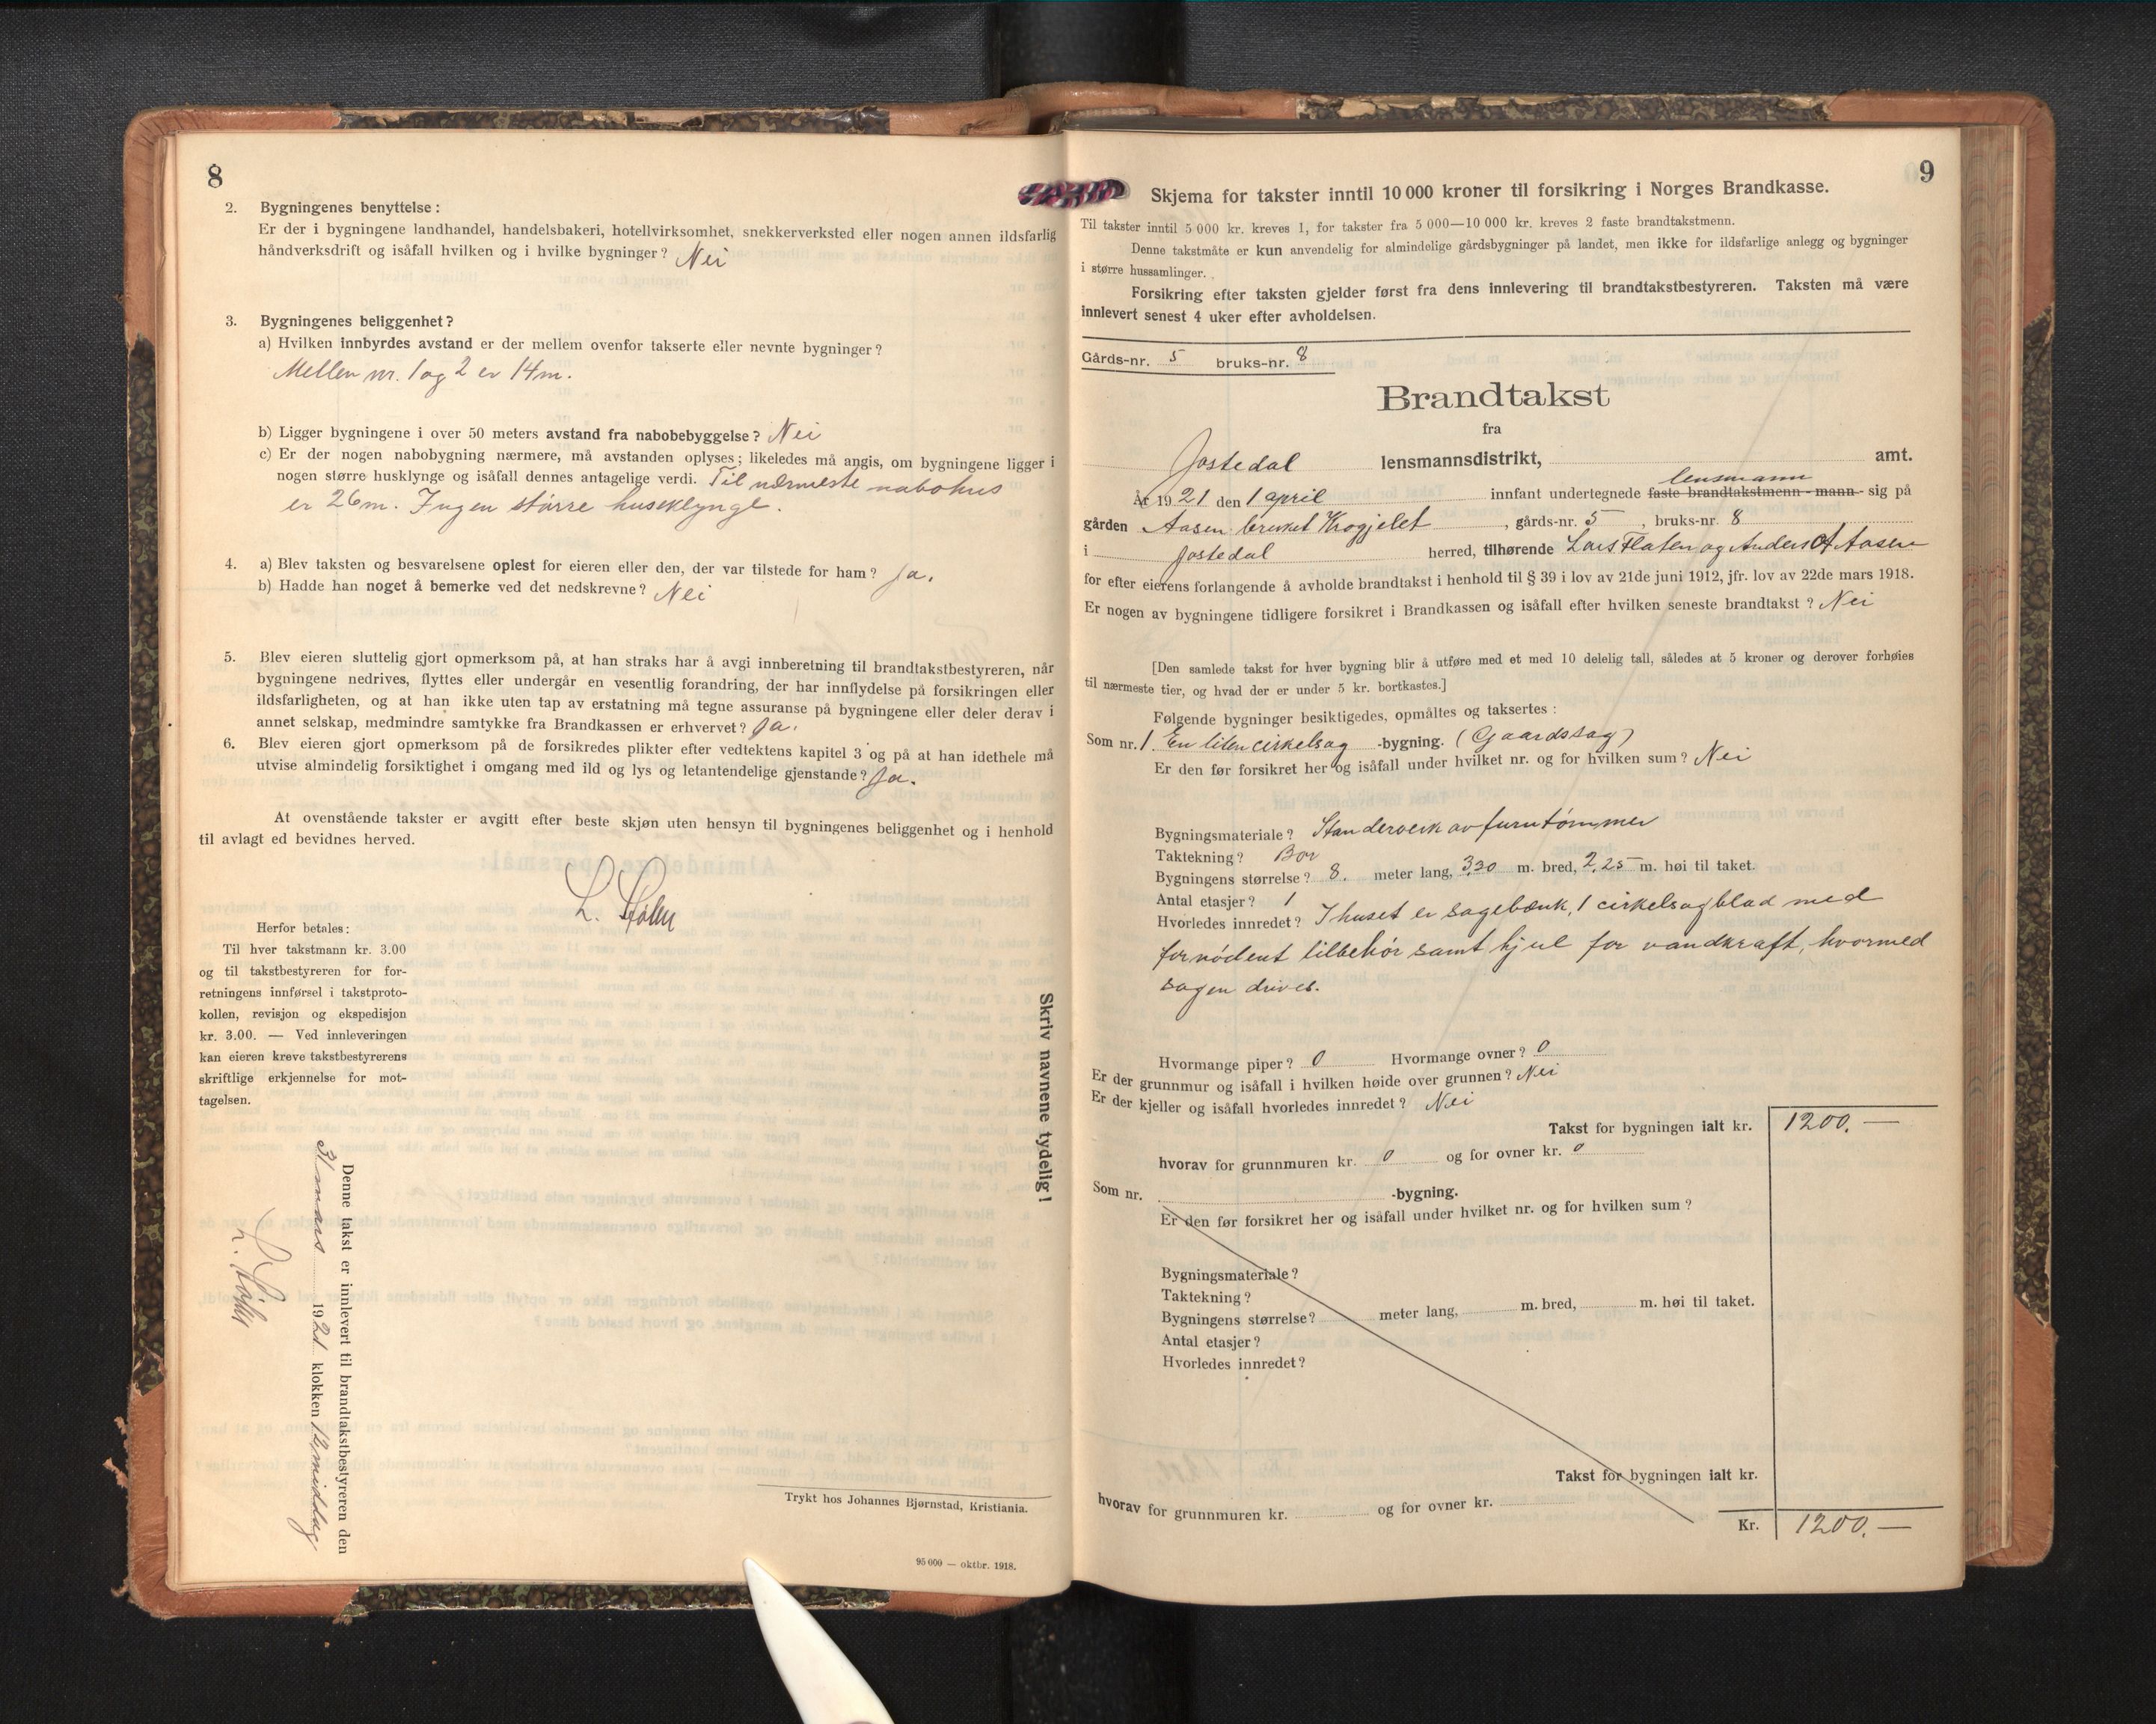 8
2. Bygningenes benyttelse:
Er der i bygningene landhandel, handelsbakeri, hotellvirksomhet, snekkerverksted eller nogen annen ildsfarlig
håndverksdrift og isåfall hvilken og i hvilke bygninger? Nei
3. Bygningenes beliggenhet?
a) Hvilken innbyrdes avstand er der mellem ovenfor takserte eller nevnte bygninger?
Mellen nr. 1 og 2 er 14 m.
b) Ligger bygningene i over 50 meters avstand fra nabobebyggelse? Nei
c) Er der nogen nabobygning nærmere, må avstanden oplyses; likeledes må angis, om bygningene ligger i
nogen større husklynge og isåfall dennes antagelige verdi. Til nærmeste nabohus
er 26 m. Ingen større huseklynge.
4. a) Blev taksten og besvarelsene oplest for eieren eller den, der var tilstede for ham? Ja.
b) Hadde han noget å bemerke ved det nedskrevne? Nei
5. Blev eieren sluttelig gjort opmerksom på, at han straks har å avgi innberetning til brandtakstbestyreren, når
bygningene nedrives, flyttes eller undergår en vesentlig forandring, der har innflydelse på forsikringen eller
ildsfarligheten, og at han ikke uten tap av erstatning må tegne assuranse på bygningene eller deler derav i
annet selskap, medmindre samtykke fra Brandkassen er erhvervet? Ja.
6. Blev eieren gjort opmerksom på de forsikredes plikter efter vedtektens kapitel 3 og på at han idethele må
utvise almindelig forsiktighet i omgang med ild og lys og letantendelige gjenstande? Ja.
At ovenstående takster er avgitt efter beste skjøn uten hensyn til bygningenes beliggenhet og i henhold
til avlagt ed bevidnes herved.
Herfor betales:
Til hver takstmann kr. 3.00
og til takstbestyreren for for-
retningens innførsel i takstproto-
kollen, revisjon og ekspedisjon
kr. 3.00. — Ved innleveringen
kan eieren kreve takstbestyrerens
skriftlige erkjennelse for mot-
tagelsen.
Denne takst er innlevert til brandtakstbestyreren den
31 mars 1921 klokken 12 middag
Skriv navnene tydelig!
Trykt hos Johannes Bjørnstad, Kristiania.
95 000 — oktbr. 1918.
9
Skjema for takster inntil 10 000 kroner til forsikring i Norges Brandkasse.
Til takster inntil 5 000 kr. kreves 1, for takster fra 5 000—10 000 kr. kreves 2 faste brandtakstmenn.
Denne takstmåte er kun anvendelig for almindelige gårdsbygninger på landet, men ikke for ildsfarlige anlegg og bygninger
i større hussamlinger.
Forsikring efter taksten gjelder først fra dens innlevering til brandtakstbestyreren. Taksten må være
innlevert senest 4 uker efter avholdelsen.
Gårds-nr. 5 bruks-nr. 8
Brandtakst
fra
Jostedal lensmannsdistrikt, amt.
lensmann
År 1921 den 1 april innfant undertegnede faste brandtakstmenn - mann - sig på
gården Aasen bruket Krogjelet, gårds-nr. 5, bruks-nr. 8
i Jostedal herred, tilhørende Lars Flaten og Anders A Aasen
for efter eierens forlangende å avholde brandtakst i henhold til § 39 i lov av 21de juni 1912, jfr. lov av 22de mars 1918.
Er nogen av bygningene tidligere forsikret i Brandkassen og isåfall efter hvilken seneste brandtakst? Nei
[Den samlede takst for hver bygning blir å utføre med et med 10 delelig tall, således at 5 kroner og derover forhøies
til nærmeste tier, og hvad der er under 5 kr. bortkastes.]
Følgende bygninger besiktigedes, opmåltes og taksertes:
Som nr. 1. En liten cirkelsag -bygning. (Gaardssag)
Er den før forsikret her og isåfall under hvilket nr. og for hvilken sum? Nei
Bygningsmateriale? Standerverk av furutømmer
Taktekning? Bor
Bygningens størrelse? 8. meter lang, 3,30 m. bred, 2,25 m. høi til taket.
Antal etasjer? 1
Hvorledes innredet? I huset er sagebænk, 1 cirkelsagblad med
fornødent tilbehør samt hjul for vandkraft, hvormed
sagen drives.
Hvormange piper? 0 Hvormange ovner? 0
Er der grunnmur og isåfall i hvilken høide over grunnen? Nei
Er der kjeller og isåfall hvorledes innredet? Nei
Takst for bygningen ialt kr. 1200.—
hvorav for grunnmuren kr. 0 og for ovner kr. 0
Som nr. -bygning.
Er den før forsikret her og isåfall under hvilket nr. og for hvilken sum?
Bygningsmateriale?
Taktekning?
Bygningens størrelse? meter lang, m. bred, m. høi til taket.
Antal etasjer?
Hvorledes innredet?
Takst for bygningen ialt kr.
hvorav for grunnmuren kr. og for ovner kr.
Kr. 1200.—